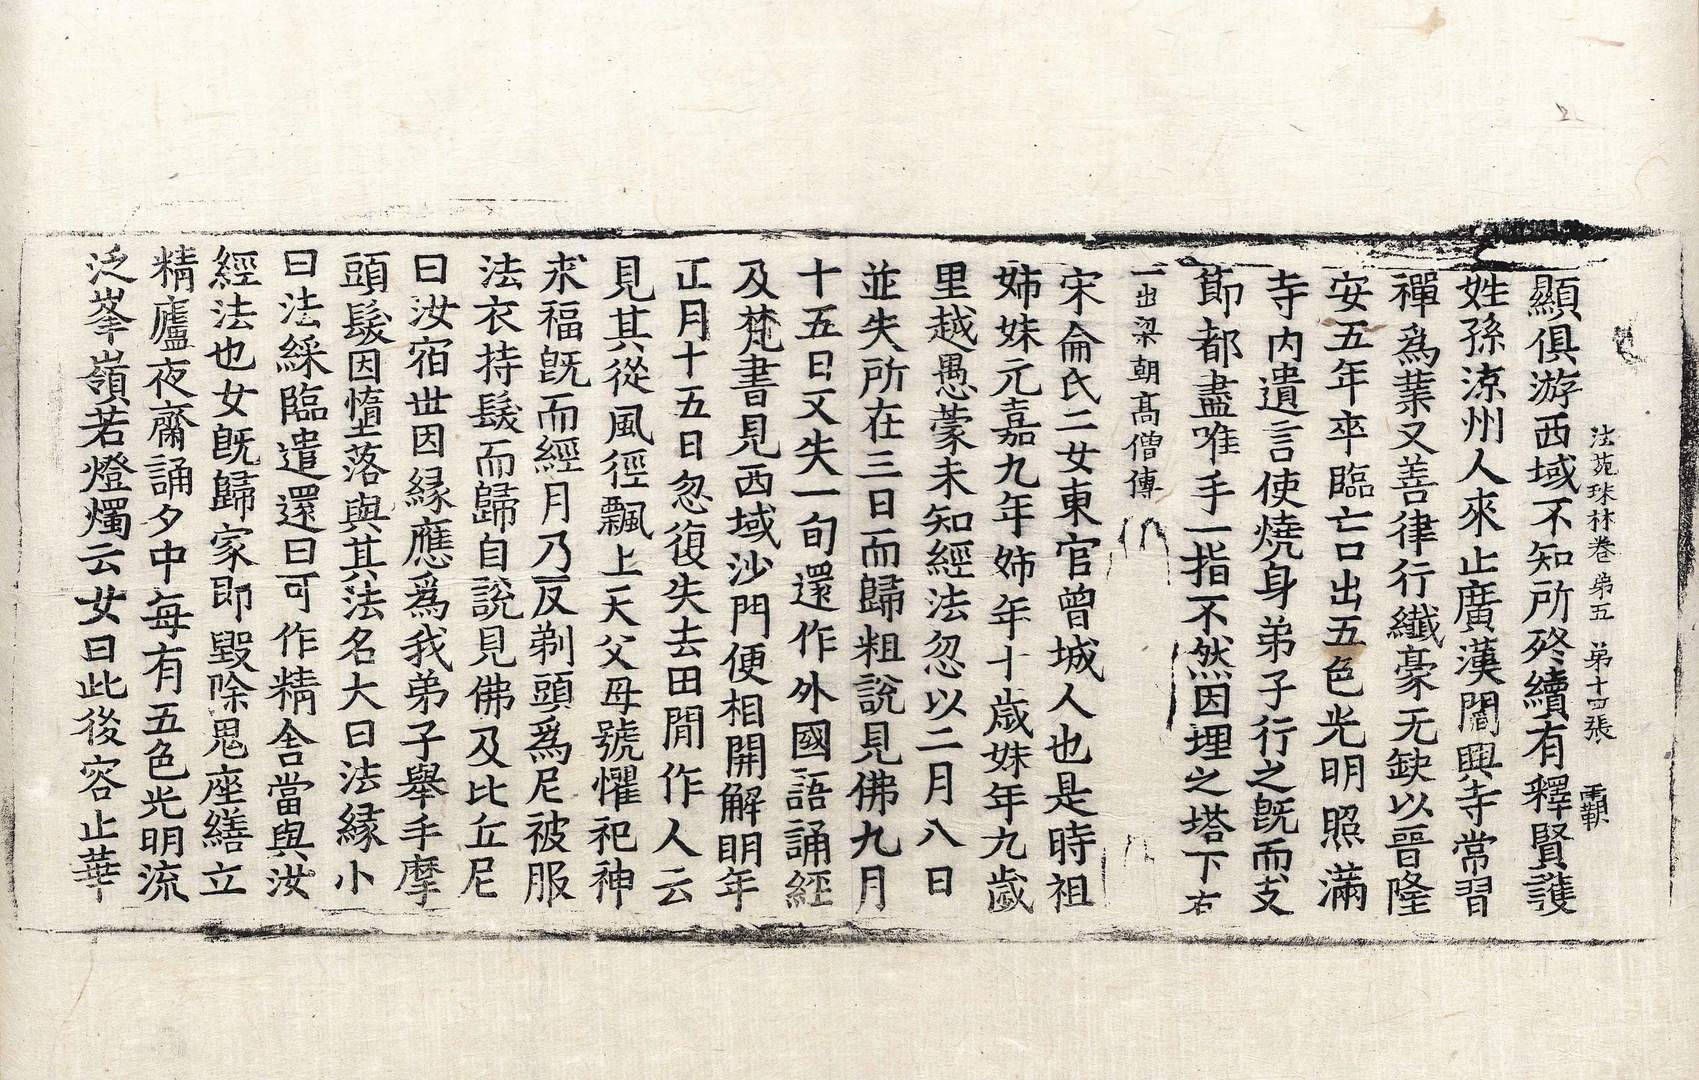 法苑珠林卷弟五　弟十四張　覇
顯俱游西域不知所終續有釋賢護
姓孫涼州人來止廣漢閻興寺常習
禪爲業又善律行纖豪无缺以晋隆
安五年卒臨亡口出五色光明照滿
寺内遺言使燒身弟子行之旣而支
節都盡唯手一指不然因埋之塔下右
一出梁朝高僧傳
宋侖氏二女東官曾城人也是時祖
姉妹元嘉九年姉年十歲妹年九歲
里越愚蒙未知經法忽以二月八日
並失所在三日而歸粗說見佛九月
十五日又失一旬還作外國語誦經
及梵書見西域沙門便相開解明年
正月十五日忽復失去田閒作人云
見其從風徑飄上天父母號懼祀神
求福旣而經月乃反剃頭爲尼被服
法衣持髮而歸自說見佛及比丘尼
曰汝宿世因縁應爲我弟子舉手摩
頭髮因墮落與其法名大曰法縁小
曰法綵臨遣還曰可作精舍當與汝
經法也女旣歸家即毀除鬼座繕立
精廬夜齋誦夕中每有五色光明流
泛峯嶺若燈燭云女曰此後容止華